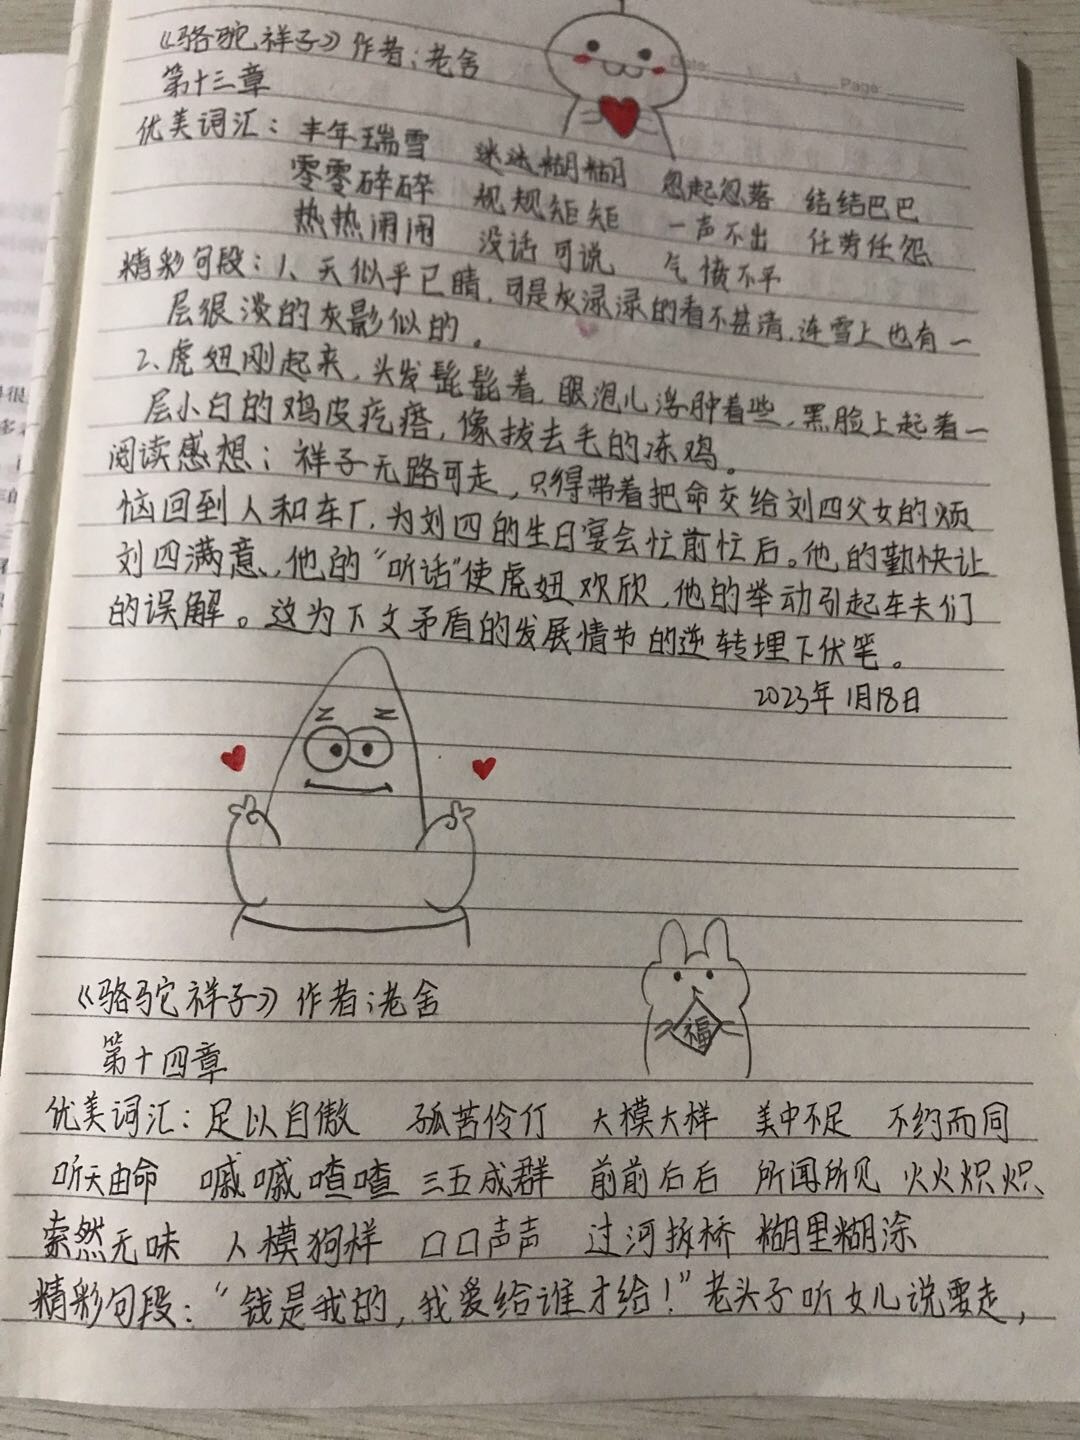 《骆驼祥子》作者:老舍
Date:
Page:
第十三章
优美词汇: 丰年瑞雪 迷迷糊糊 忽起忽落 结结巴巴
零零碎碎 规规矩矩 一声不出 任劳任怨
热热闹闹 没话可说 气愤不平
精彩句段:1、天似乎已晴,可是灰渌渌的看不甚清,连雪上也有一
层很淡的灰影似的。
2、虎妞刚起来,头发髭髭着,眼泡儿浮肿着些,黑脸上起着一
层小白的鸡皮疙瘩,像拔去毛的冻鸡。
阅读感想:祥子无路可走,只得带着把命交给刘四父女的烦
恼回到人和车厂,为刘四的生日宴会忙前忙后。他的勤快让
刘四满意,他的“听话”使虎妞欢欣,他的举动引起车夫们
的误解。这为下文矛盾的发展情节的逆转埋下伏笔。
2023年1月18日
《骆驼祥子》作者:老舍
福
第十四章
优美词汇:足以自傲 孤苦伶仃 大模大样 美中不足 不约而同
听天由命 嘁嘁喳喳 三五成群 前前后后 所闻所见 火火炽炽
索然无味 人模狗样 口口声声 过河拆桥 糊里糊涂
精彩句段:“钱是我的,我爱给谁才给!”老头子听女儿说要走,